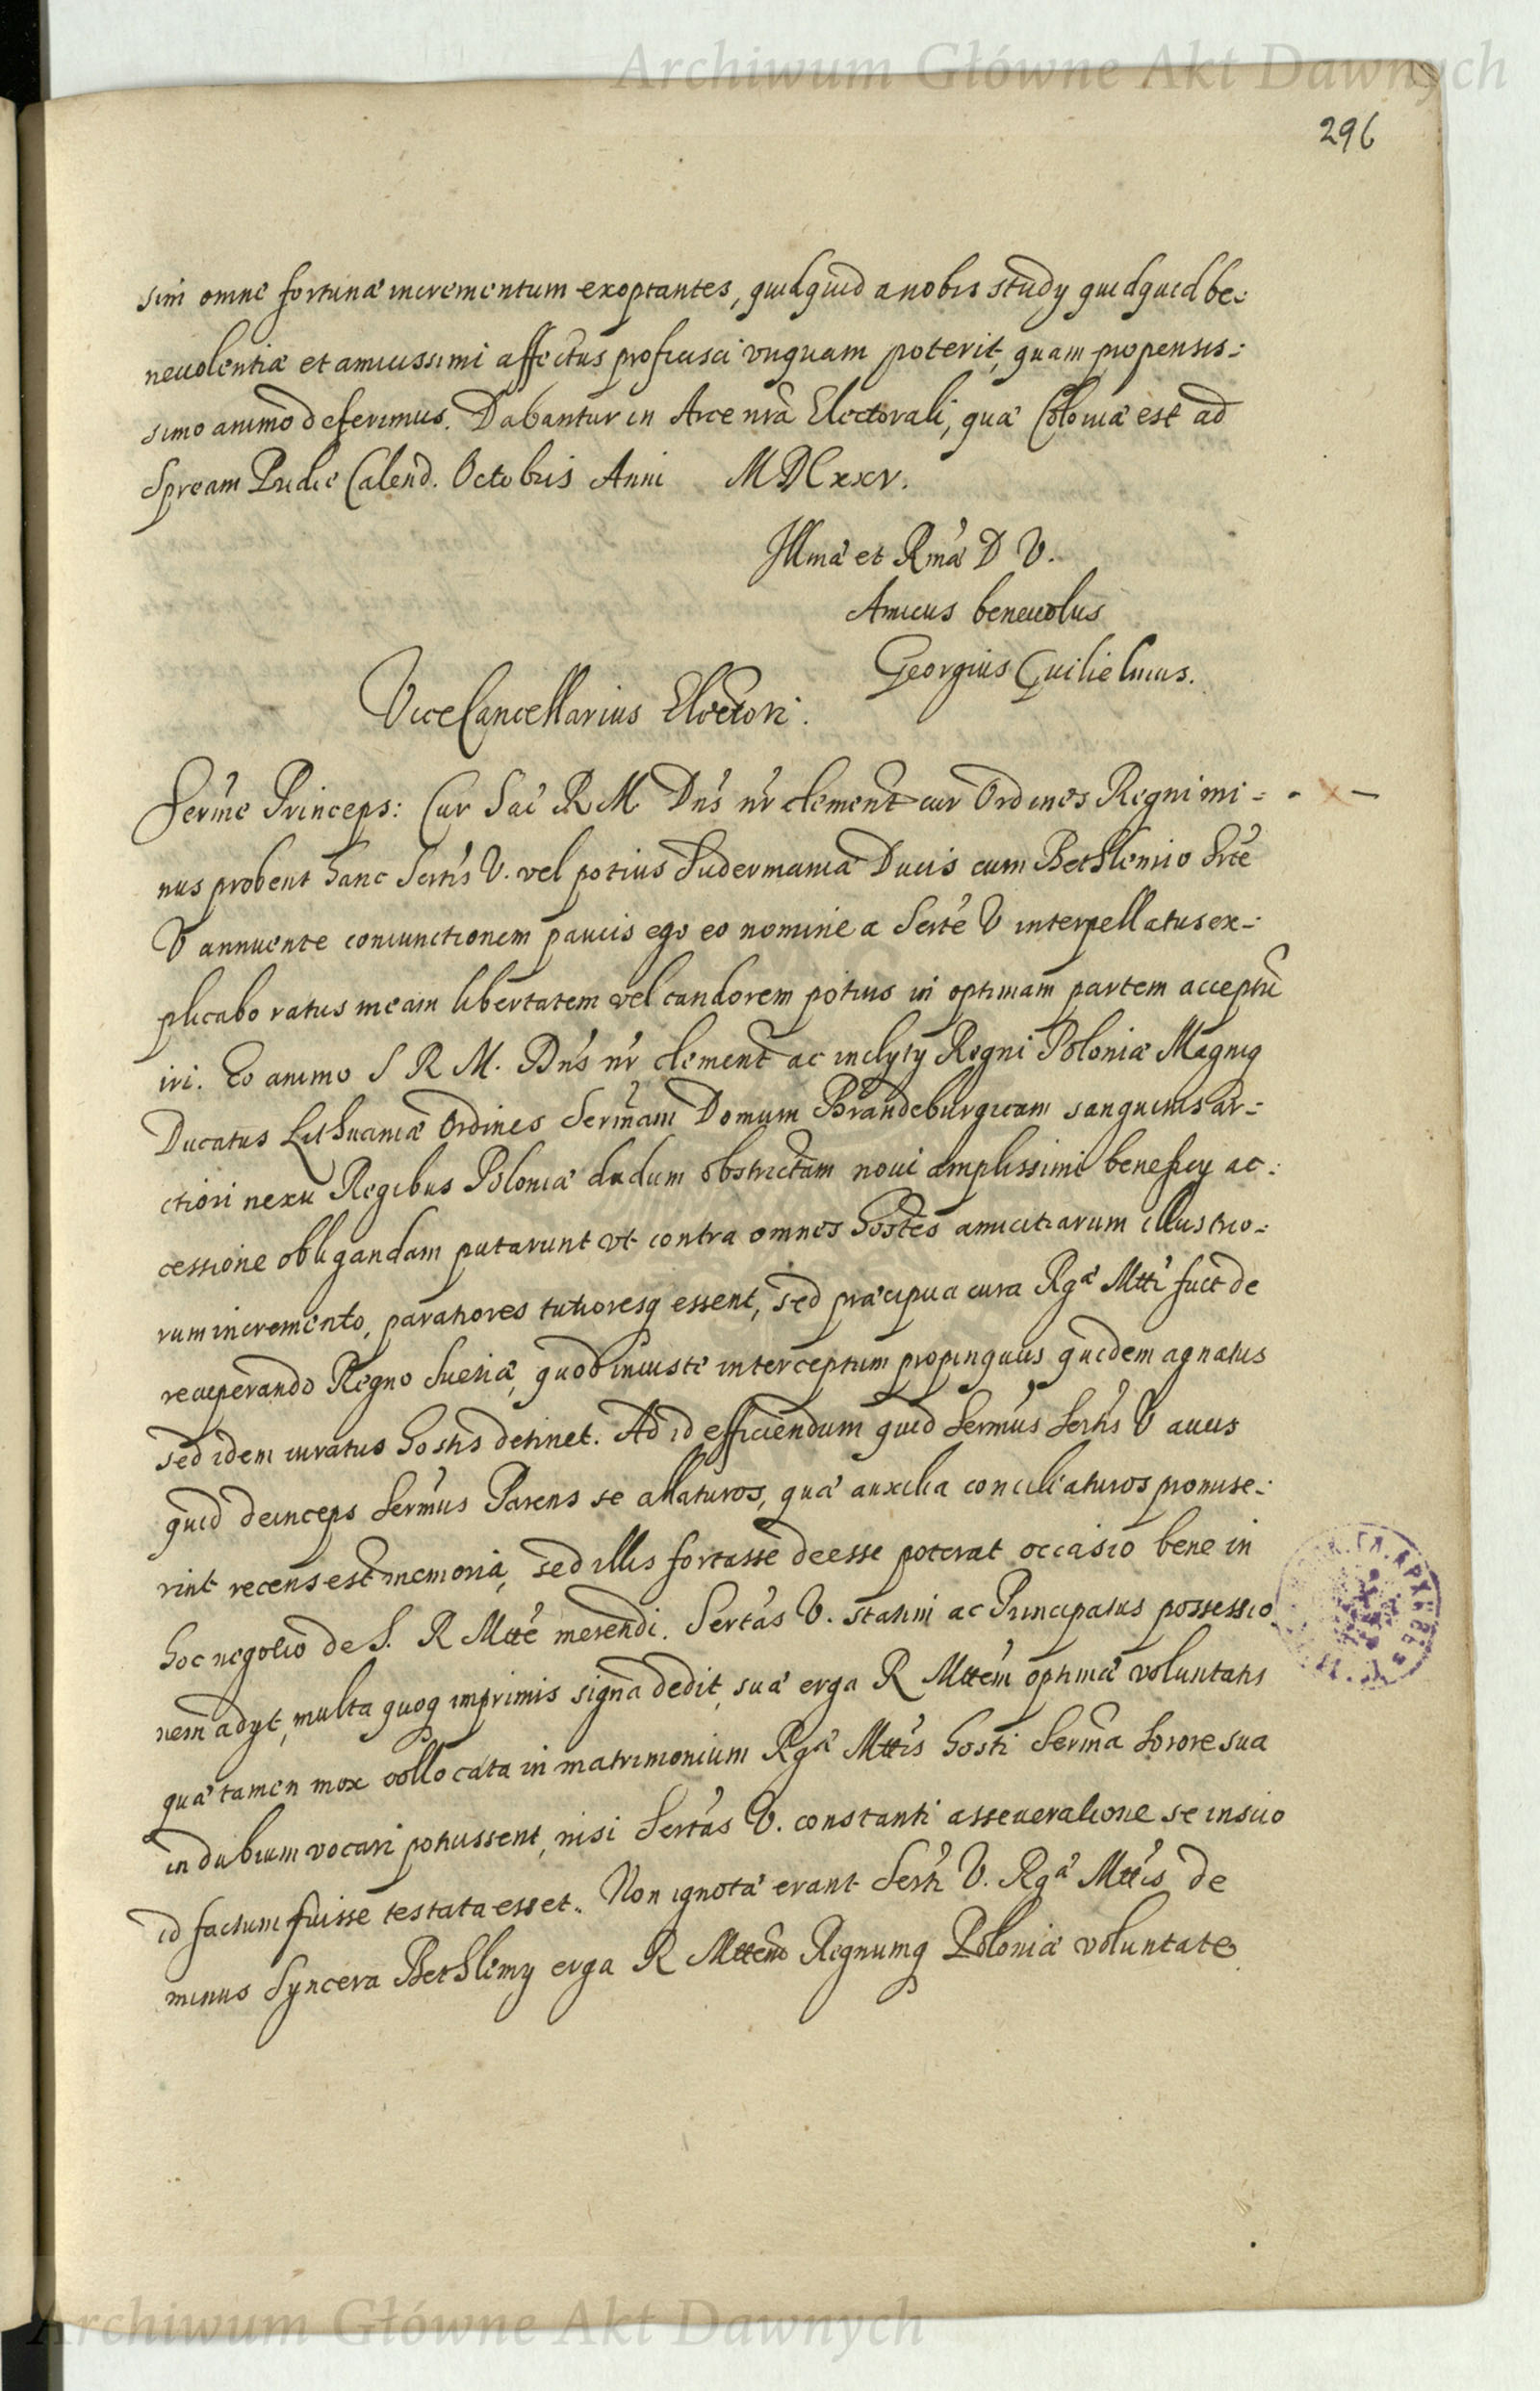 Archiwum Główne Akt Dawnych
296
sim omne fortunæ incrementum exoptantes, quidquid a nobis study quidquid be-
neuolentiæ et amicissimi affectus proficisci vnquam poterit, quam propensis-
simo animo deferimus. Dabantur in Arce nrã Electorali, quæ Coloniæ est ad
Spream Pridie Calend. Octobris Anni MDCxxv.
Illmæ et Rmæ D V.
Amicus beneuolus
Georgius Guilielmus.
ViceCancellarius Electori.
Serme Princeps: Cur Sac R M Dns nr clement cur Ordines Regni mi-
nus probent hanc Sertis V. vel potius Sudermaniæ Ducis cum Bethlemio Srte
V annuente coniunctionem paucis ego eo nomine a Serte V interpellatus ex-
plicabo ratus meam libertatem vel candorem potius in optimam partem acceptũ
iri. Eo animo S R M. Dns nr clement ac inclyty Regni Poloniæ Magniq
Ducatus Lithuaniæ Ordines Sermam Domum Brandeburgicam sanguinis ar-
ctiori nexu Regibus Poloniæ dudum obstrictam noui amplissimi beneficy ac-
cessione obligandam putarunt vt contra omnes hostes amicitiarum illustrio-
rum incremento, paratiores tutioresq essent, sed præcipua cura Rgæ Mtti fuit de
recuperando Regno Sueciæ, quod iniuste interceptum propinquus quidem agnatus
sed idem iuratus hostis detinet. Ad id efficiendum quid Sermus Sertis V auus
quid deinceps Sermus Parens se allaturos, quæ auxilia conciliaturos promise-
rint recens est memoria, sed illis fortasse deesse poterat occasio bene in
hoc negotio de S. R Mtte merendi. Sertas V. statim ac Principatus possessio
nem adyt, multa quoq imprimis signa dedit, suæ erga R Mttem optimæ voluntatis
quæ tamen mox collocata in matrimonium Rgæ Mttis hosti Serma Sorore sua
in dubium vocari potuissent, nisi Sertas V. constanti asseueratione se inscio
id factum fuisse testata esset. Non ignotæ erant Serti V. Rgæ Mttis de
minus syncera Bethlemy erga R Mttem Regnumq Poloniæ voluntate
Archiwum Główne Akt Dawnych